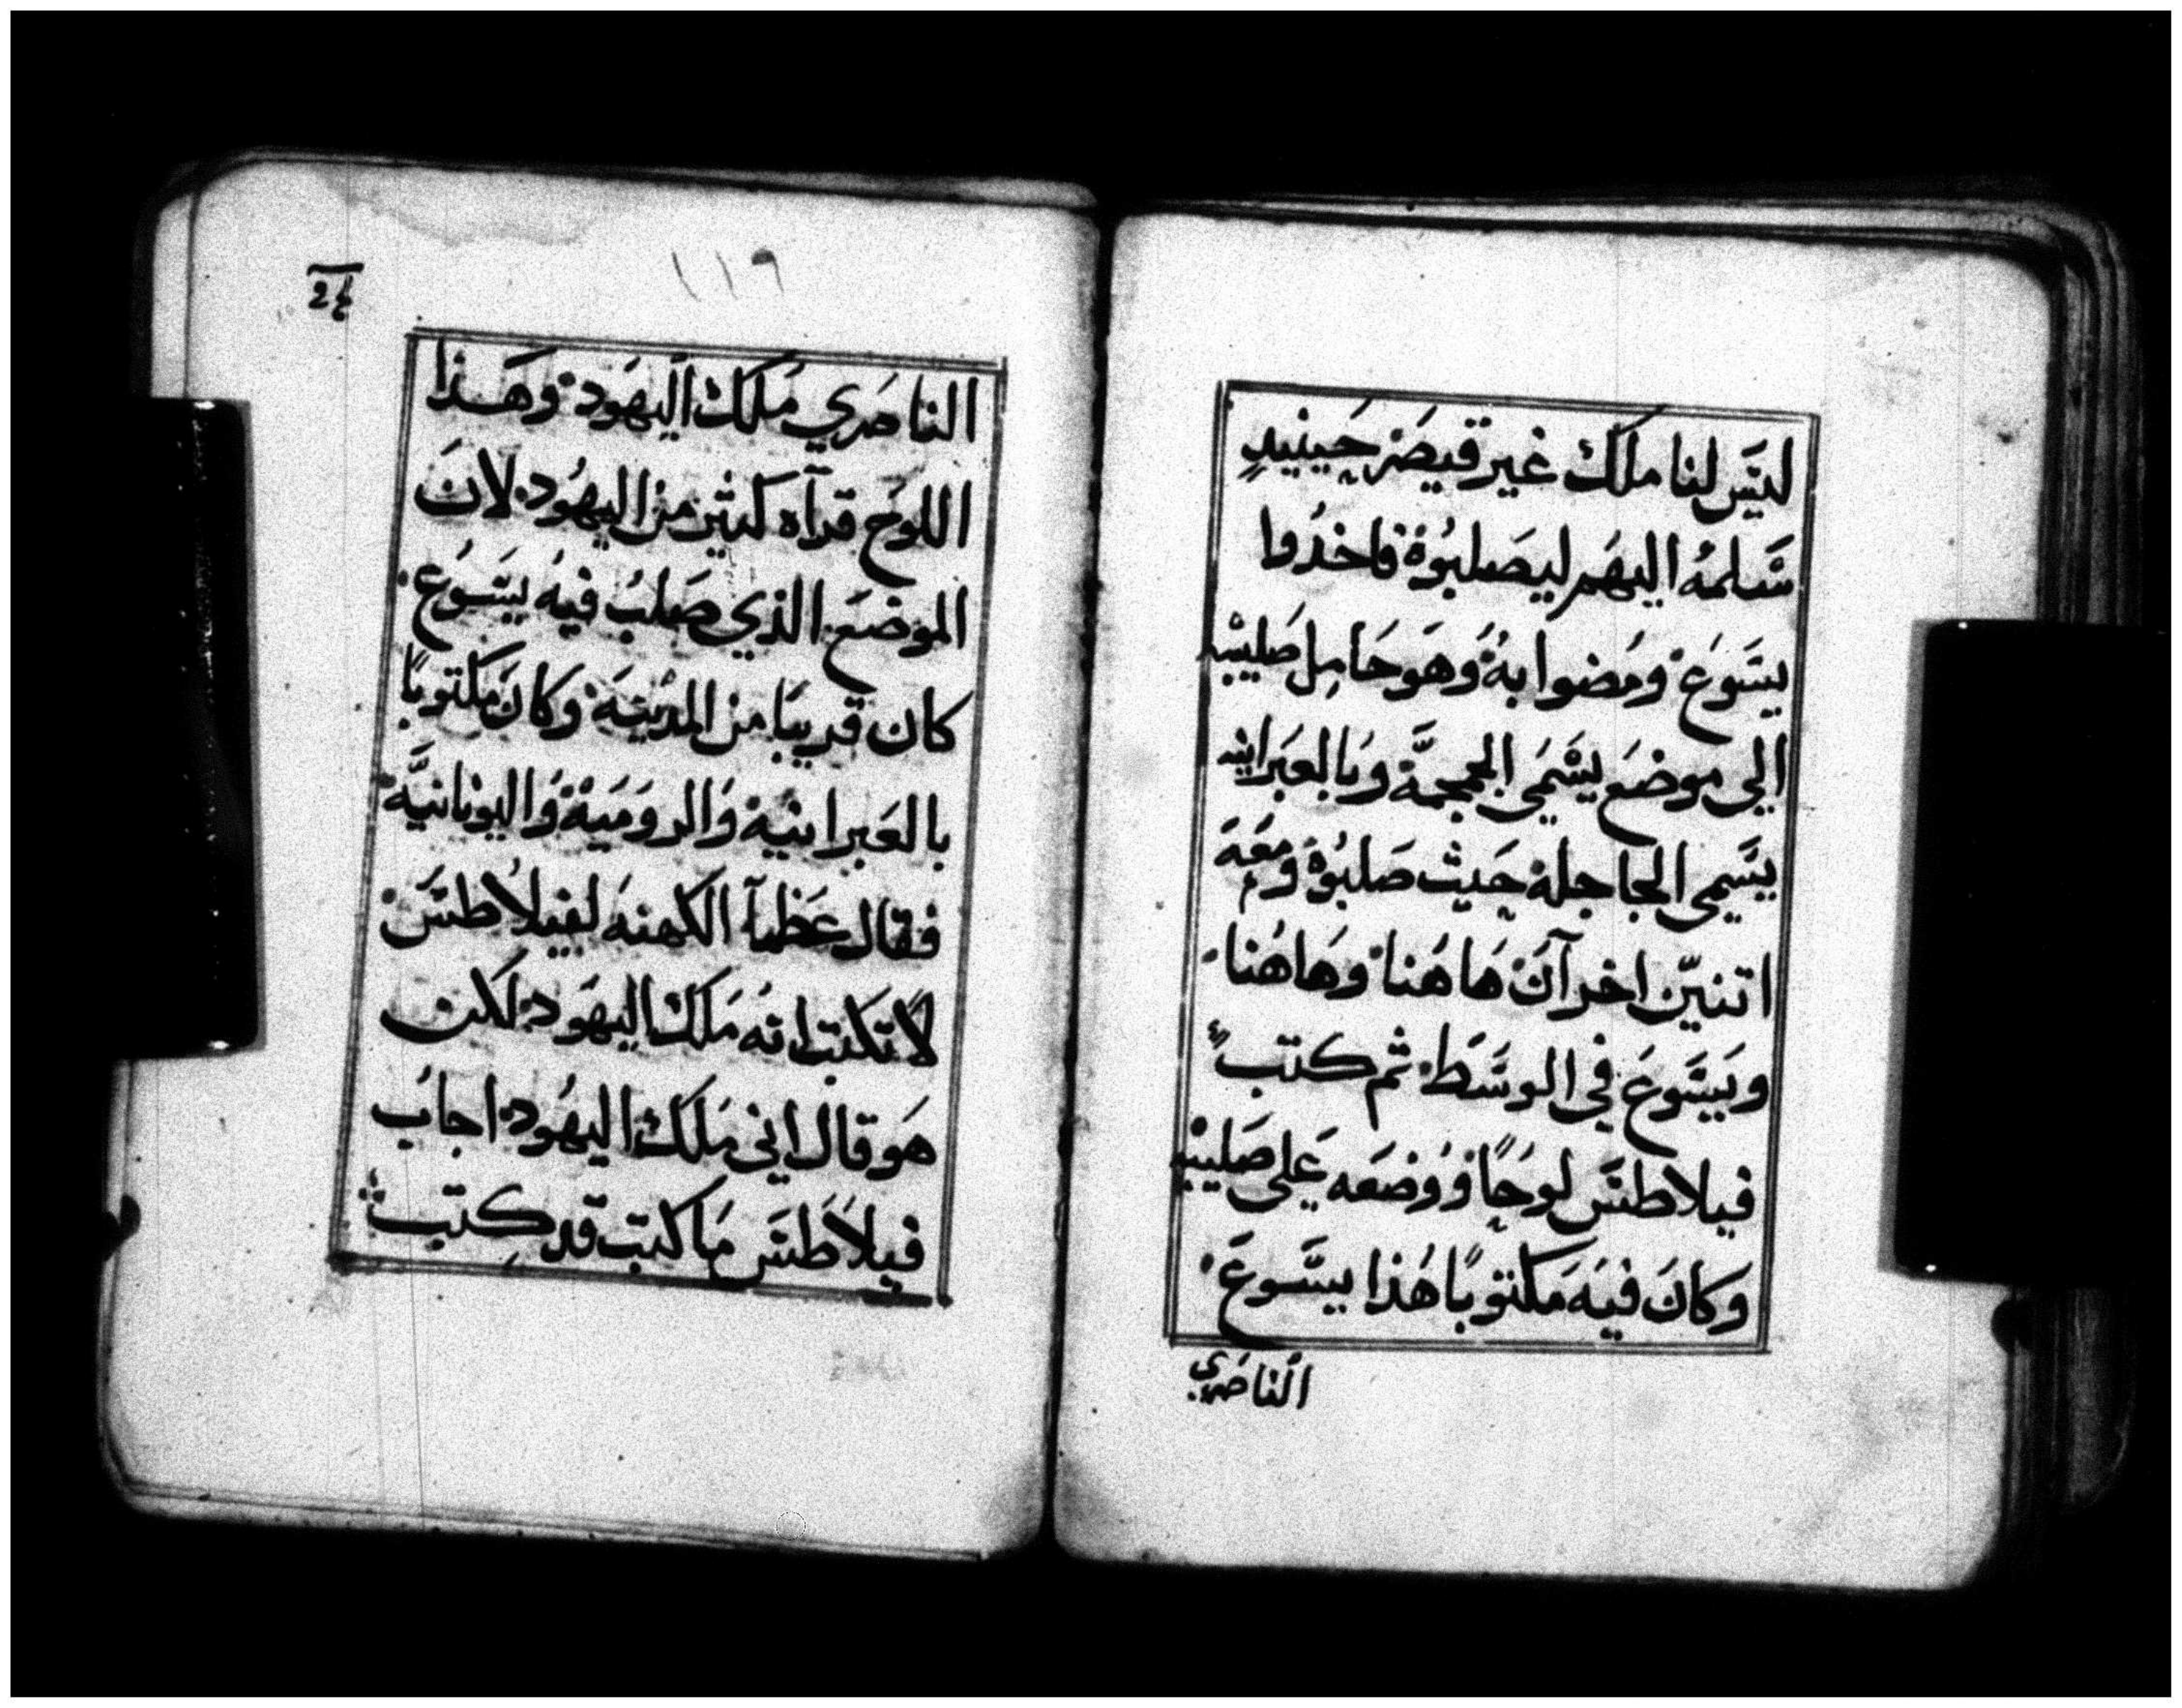 ليَسَ لنا ملكَ غير قيصَر حَينيدٍ
سَلمهُ اليهَم ليصَلبوُة فاخدُوا
يسَوعَ ومُضوا بهُ وَهوَ حَامِل صَليبه
الي موضعَ يسَمَي الجمجمَّة وَبا لعبَرانيه
يسَمي الجاجلة حَيث صَلبوُة ومعَهَ
اتنينّ اخرآنَ هَا هُنا وهَاهُنا
ويَسَوعَ في الوسَطَ ثم كتبَ
فيلاطسَ لوحًا ووُضعَه عَلي صَليبه
وَكانَ فيهَ مَكتوبًا هُذا يسَوعَ
الناصَري
١١٩
الناصَري مَلكَ اليهَود وَهَذا
اللوحَ قرآه كثير من اليهُود لانَ
الموضعَ الذي صَلبُ فيهُ يسَوُع
كان قريبَا من المدينهَ وَكانَ مَكتوبًا
بالعَبرانيَة وَالرومَيَة وَاليونانيَّة
فقالَ عَظمآ الكهنهَ لفيلاُطسَ
لا تكتب انه مَلكَ اليهَود لكن
هَو قالَ اني مَلكَ اليهُود اجابُ
فيلاَطسَ مَا كتبت قد كِتبت